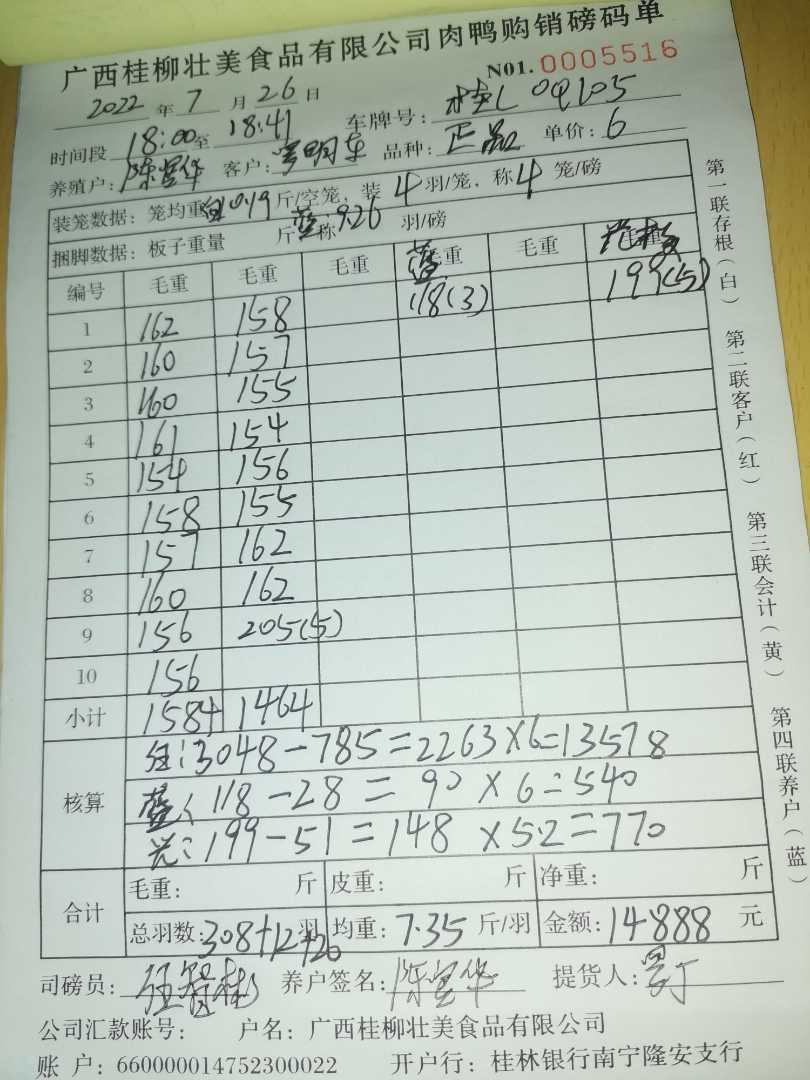 广西桂柳壮美食品有限公司肉鸭购销磅码单
2022 年 7 月 26 日 N01. 0005516
时间段 18:00 至 18:41 车牌号: 桂L 09105
养殖户: 陈星华 客户: 品种: 正品 单价: 6
装笼数据: 笼均重 10.19 斤/空笼, 装 4 羽/笼, 称 4 笼/磅
捆脚数据: 板子重量 斤 称 蓝:9.26 羽/磅
编号 毛重 毛重 毛重 蓝 毛重 毛重
1 162 158 118(3) 199(5)
2 160 157
3 160 155
4 161 154
5 154 156
6 158 155
7 157 162
8 160 162
9 156 205(5)
10 156
小计 1584 1464
核算 :3048-785=2263×6=13578
蓝: 118-28=90×6=540
:199-51=148×5.2=770
合计 毛重: 斤 皮重: 斤 净重: 斤
总羽数: 308+12+20 羽 均重: 7.35 斤/羽 金额: 14888 元
司磅员: 养户签名: 陈星华 提货人:
公司汇款账号: 户名: 广西桂柳壮美食品有限公司
账 户: 660000014752300022 开户行: 桂林银行南宁隆安支行
第一联存根(白) 第二联客户(红) 第三联会计(黄) 第四联养户(蓝)